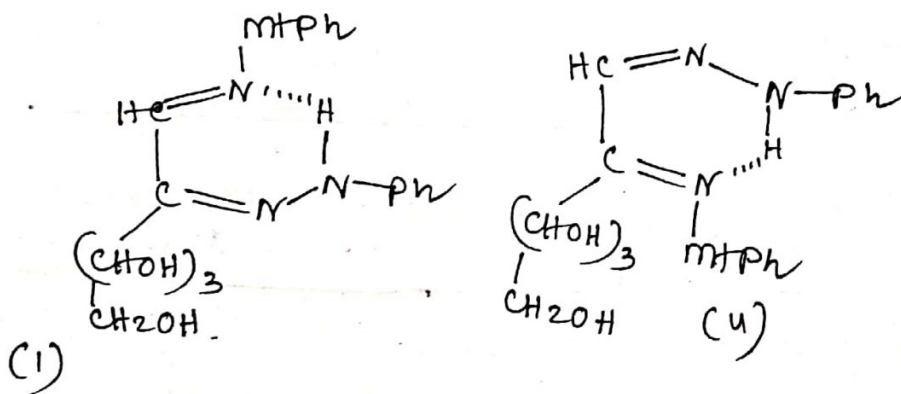 NHPh
HC=N H
C=N-N-Ph
(CHOH)3
CH2OH
(1)
HC=N
N-Ph
C=N H
(CHOH)3 NHPh
CH2OH
(4)